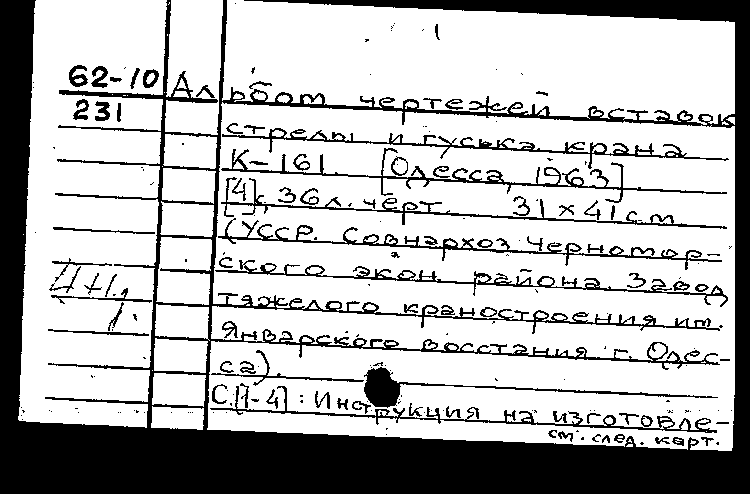 1
62-10 Альбом чертежей вставок
231 стрелы и гуська крана
К-161. [Одесса, 1963].
[4] с, 36 л. черт. 31 × 41 см
(УССР. Совнархоз Черномор-
ского экон. района. Завод
тяжелого краностроения им.
Январского восстания г. Одес-
са).
С. [1-4] : Инструкция на изготовле-
см. след. карт.